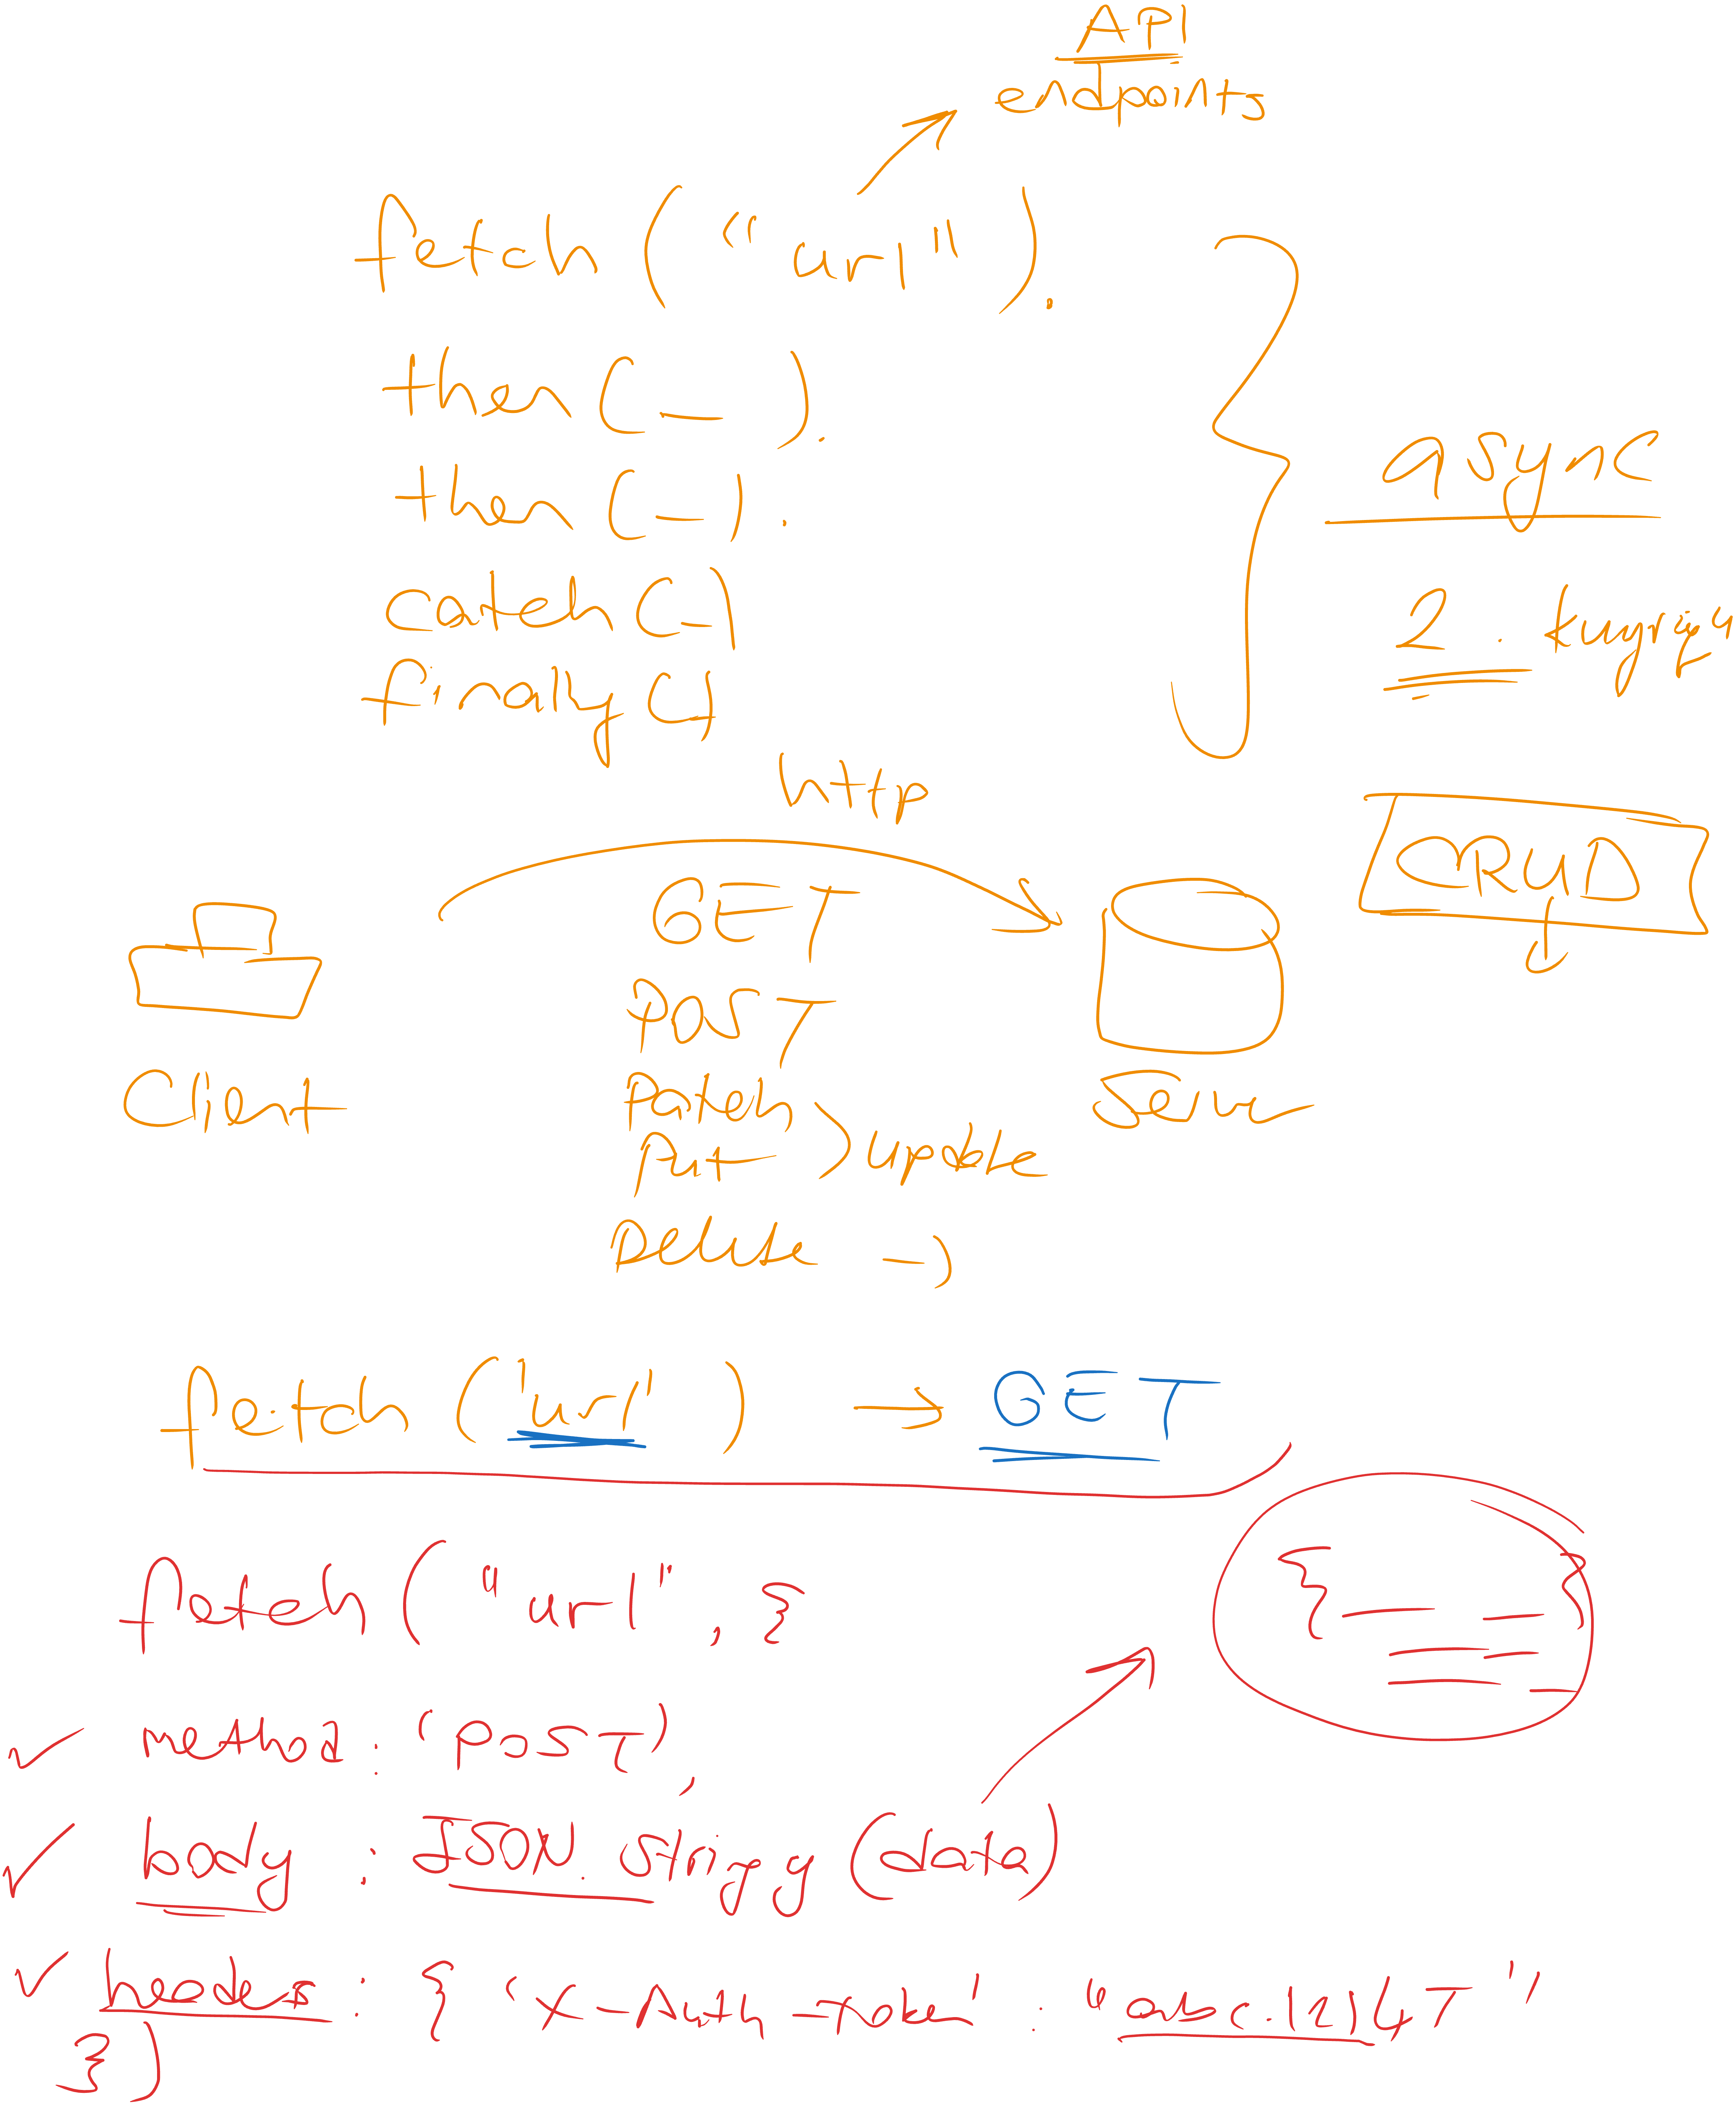 API
endpoints
fetch ( " url " ) .
then ( _ ) .
then ( _ ) .
catch ( _ )
finally ( _ )
async
2 .
http
CRUD
GET
POST
Patch
Put > update
Delete →
Client
Server
fetch ( 'url' ) → GET
fetch ( "url" , {
method : 'POST' ,
body : JSON. (data)
headers : { 'x-Auth-Token' :
})